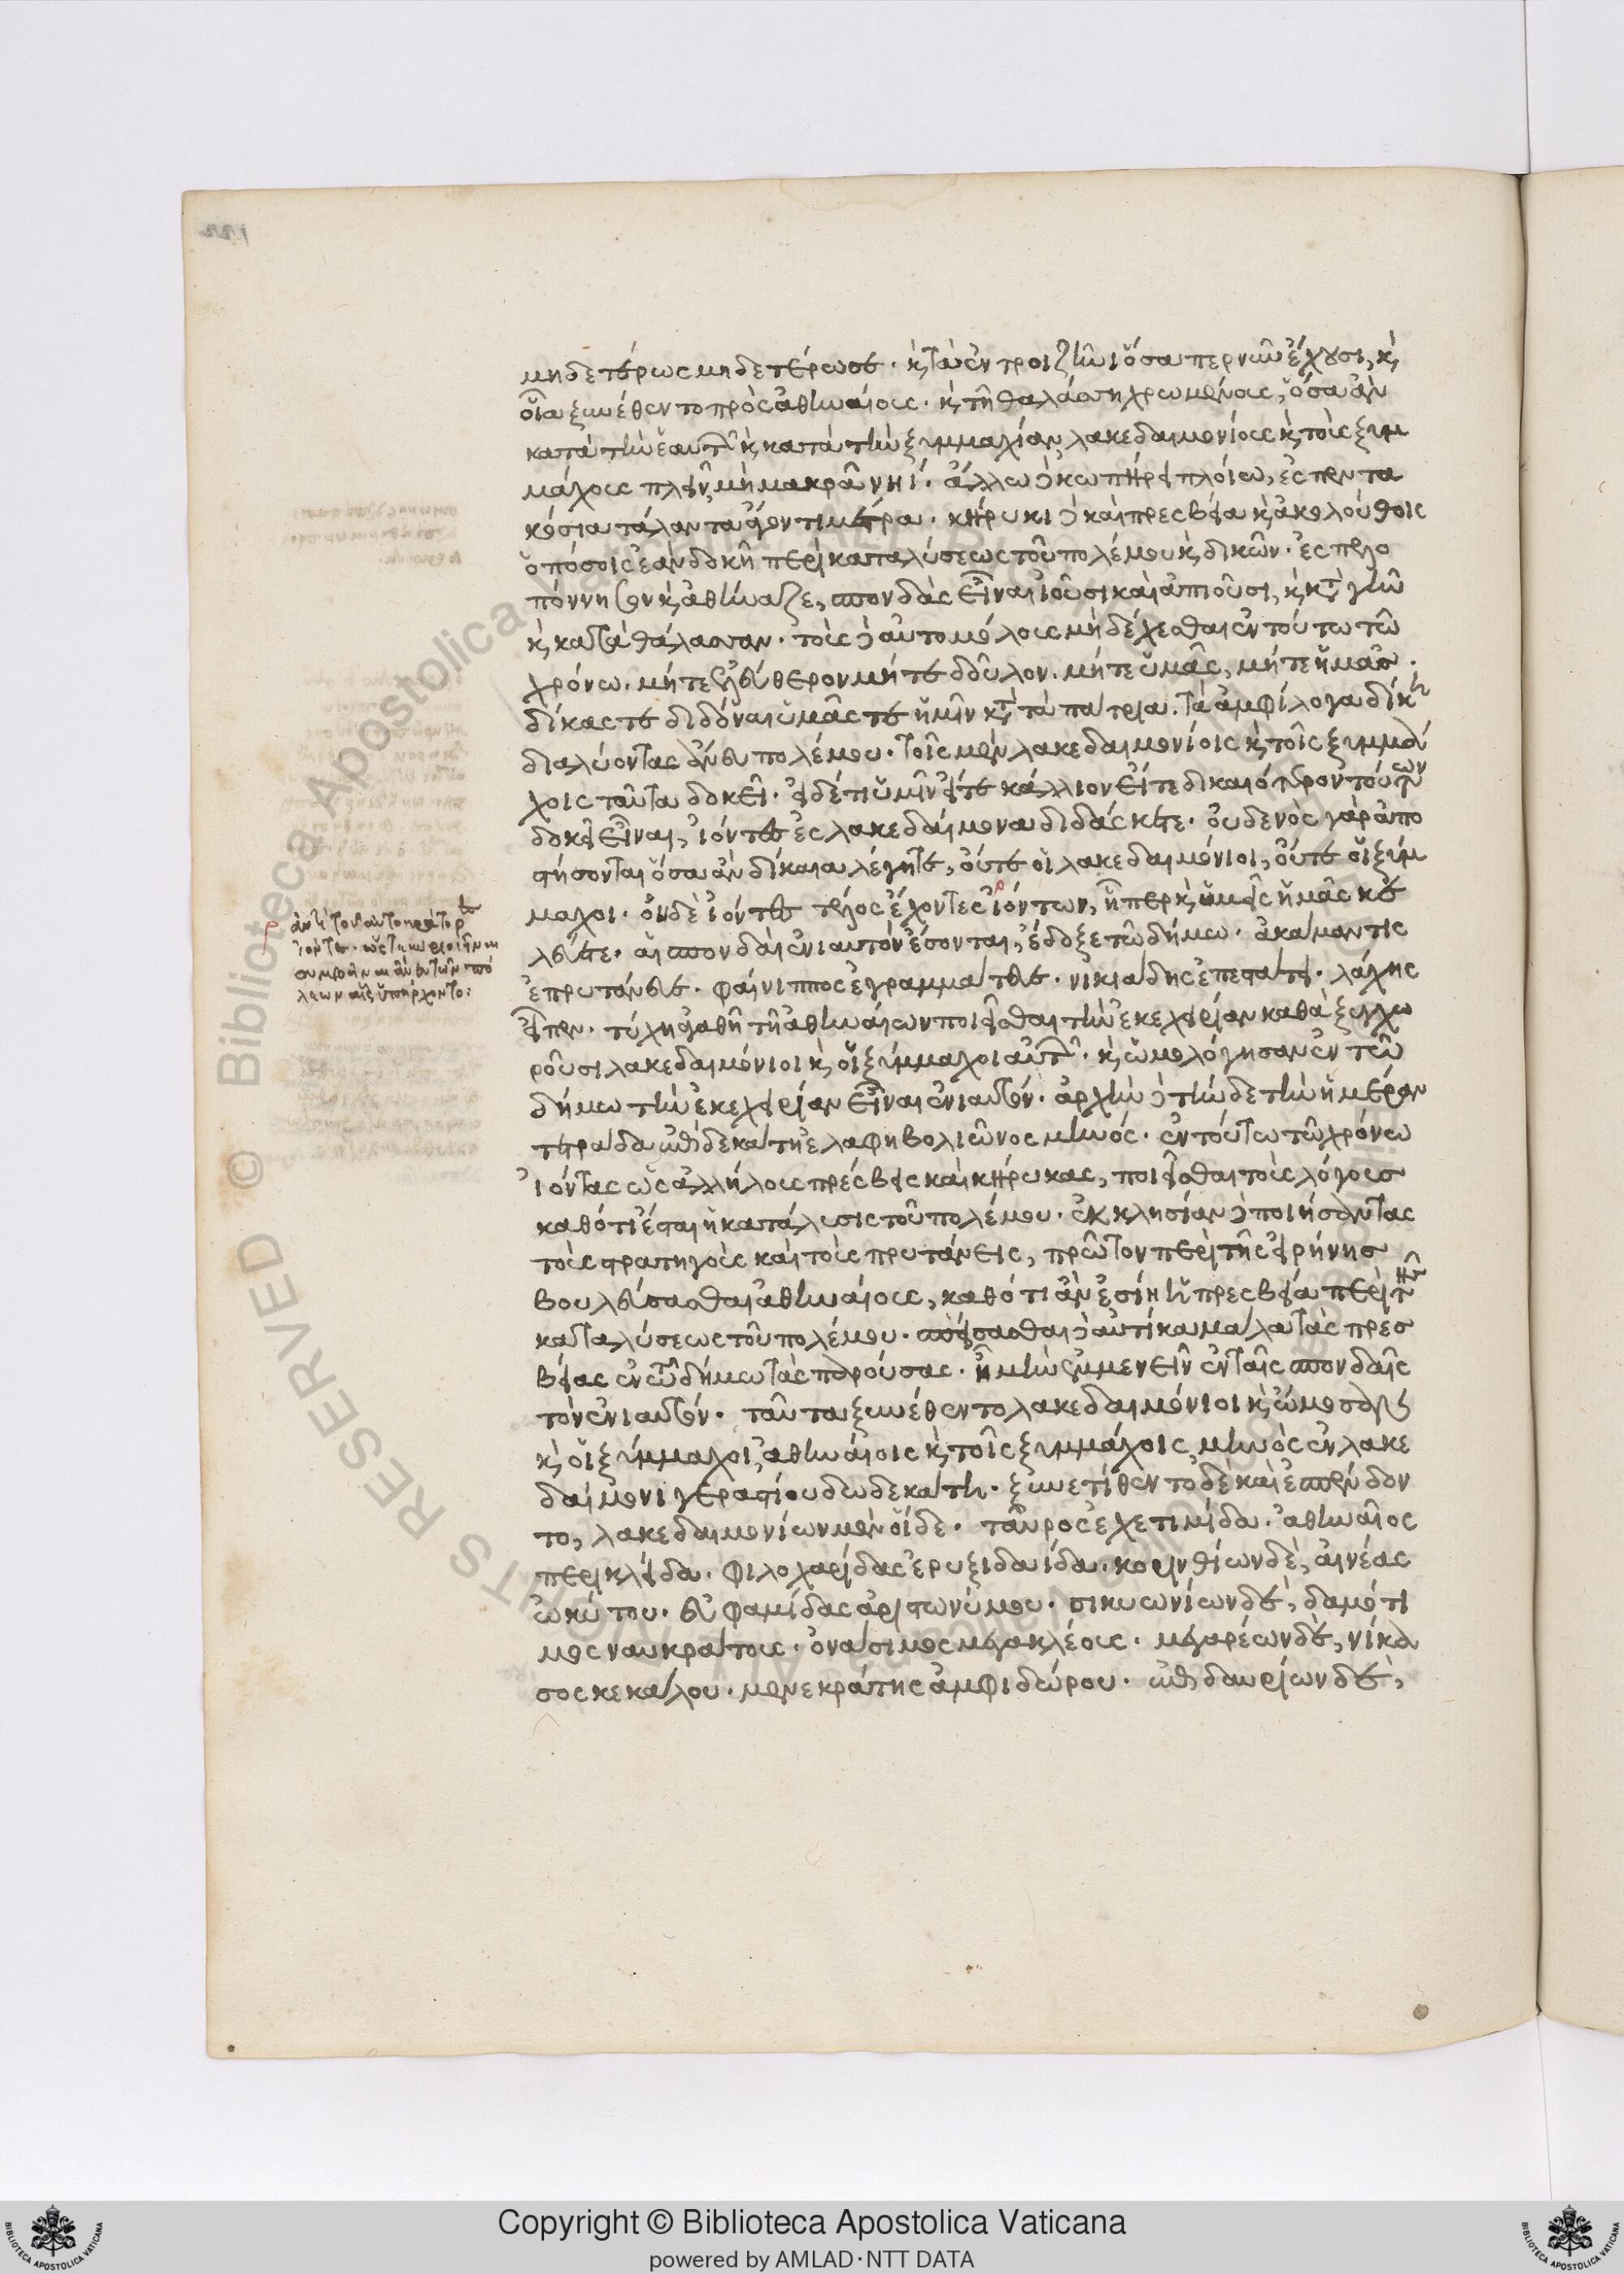 μηδετέρως μηδετέρωσε· ϗ τὰ ἐν τροιζῆνι ὅσα περ νῦν ἔχουσι, ϗ
οἷα ξυνέθεντο πρὸς ἀθηναίους· ϗ τῇ θαλάσσῃ χρωμένους, ὅσα ἂν
κατὰ τὴν ἑαυτῶν ϗ κατὰ τὴν ξυμμαχίαν, λακεδαιμονίους ϗ τοὺς ξυμ
μάχους πλεῖν, μὴ μακρᾷ νηί· ἄλλω δὲ κωπήρει πλοίω, ἐς πεντα
κόσια τάλαντα ἄγοντι μέτρα· κήρυκι δὲ καὶ πρεσβεία ϗ ἀκολούθοις
ὁπόσοις ἐὰν δοκῇ περὶ καταλύσεως τοῦ πολέμου ϗ δικῶν· ἐς πελο
πόννησον ϗ ἀθήναζε, σπονδὰς εἶναι ἰοῦσι καὶ ἀπιοῦσι, ϗ κατὰ γῆν
ϗ κατὰ θάλασσαν· τοὺς δὲ αὐτομόλους μὴ δέχεσθαι ἐν τούτω τῶ
χρόνω. μήτε ἐλεύθερον μήτε δοῦλον. μήτε ὑμᾶς, μήτε ἡμᾶσ·
δίκας τε διδόναι ὑμᾶς τε ἡμῖν κατὰ τὰ πάτρια. τὰ ἀμφίλογα δίκῃ
διαλύοντας ἄνευ πολέμου· τοῖς μὲν λακεδαιμονίοις ϗ τοῖς ξυμμά
χοις ταῦτα δοκεῖ· εἰ δέ τι ὑμῖν εἴτε κάλλιον εἴτε δικαιότερον τούτων
δοκεῖ εἶναι, ἰόντες ἐς λακεδαίμονα διδάσκετε· οὐδενὸς γὰρ ἀπο
στήσονται ὅσα ἂν δίκαια λέγητε, οὔτε οἱ λακεδαιμόνιοι, οὔτε οἱ ξύμ
μαχοι· οἱ δὲ ἰόντες τέλος ἔχοντες ἰόντων, ᾗπερ ϗ ὑμεῖς ἡμᾶς κε
λεύετε· αἱ σπονδαὶ ἐνιαυτὸν ἔσονται, ἔδοξε τῶ δήμω· ἀκαμαντὶς
ἐπρυτάνευε· φαίνιππος ἐγραμμάτευε· νικιάδης ἐπεστάτει· λάχης
εἶπεν· τύχῃ ἀγαθῇ τῇ ἀθηναίων ποιεῖσθαι τὴν ἐκεχειρίαν καθὰ ξυγχω
ροῦσι λακεδαιμόνιοι ϗ οἱ ξύμμαχοι αὐτῶν· ϗ ὡμολόγησαν ἐν τῶ
δήμω τὴν ἐκεχειρίαν εἶναι ἐνιαυτόν· ἄρχειν δὲ τήνδε τὴν ἡμέραν
τετράδα ἐπὶ δέκα τῆ ἐλαφηβολιῶνος μηνός· ἐν τούτω τῶ χρόνω
ἰόντας ὡς ἀλλήλους πρέσβεις καὶ κήρυκας, ποιεῖσθαι τοὺς λόγουσ
καθότι ἔσται ἡ κατάλυσις τοῦ πολέμου· ἐκκλησίαν δὲ ποιήσαντας
τοὺς στρατηγοὺς καὶ τοὺς πρυτάνεις, πρῶτον περὶ τῆς εἰρήνησ
βουλεύσασθαι ἀθηναίους, καθότι ἂν ἐσίῃ ἡ πρεσβεία περὶ τῆς
καταλύσεως τοῦ πολέμου· σπείσασθαι δὲ αὐτίκα μάλα τὰς πρεσ
βείας ἐν τῶ δήμω τὰς παρούσας· ἦ μὴν ἐμμενεῖν ἐν ταῖς σπονδαῖς
τὸν ἐνιαυτόν· ταῦτα ξυνέθεντο λακεδαιμόνιοι ϗ ὤμοσαν
ϗ οἱ ξύμμαχοι, ἀθηναίοις ϗ τοῖς ξυμμάχοις μηνὸς ἐν λακε
δαίμονι γεραστίου δωδεκάτη· ξυνετίθεντο δὲ καὶ ἐσπένδον
το, λακεδαιμονίων μὲν οἵδε· ταῦρος ἐχετιμίδα. ἀθηναῖος
περικλείδα. φιλοχαρίδας ἐρυξιδαΐδα. κορινθίων δὲ, αἰνέας
ὠκύτου. εὐφαμίδας ἀριστωνύμου· σικυωνίων δὲ, δαμότι
μος ναυκράτους· ὀνάσιμος μεγακλέους. μεγαρέων δὲ, νίκα
σος κεκάλου. μενεκράτης ἀμφιδώρου. ἐπιδαυρίων δὲ,
ἀντὶ τοῦ αὐτοκράτορες
ἰόντες. ὥστε κυρίοι εἶναι
συμβῆναι ἄνευ τῶν πό
λεων αἷς ὑπήρχοντο:
© Biblioteca Apostolica Vaticana ALL RIGHTS RESERVED
Copyright © Biblioteca Apostolica Vaticana
powered by AMLAD·NTT DATA